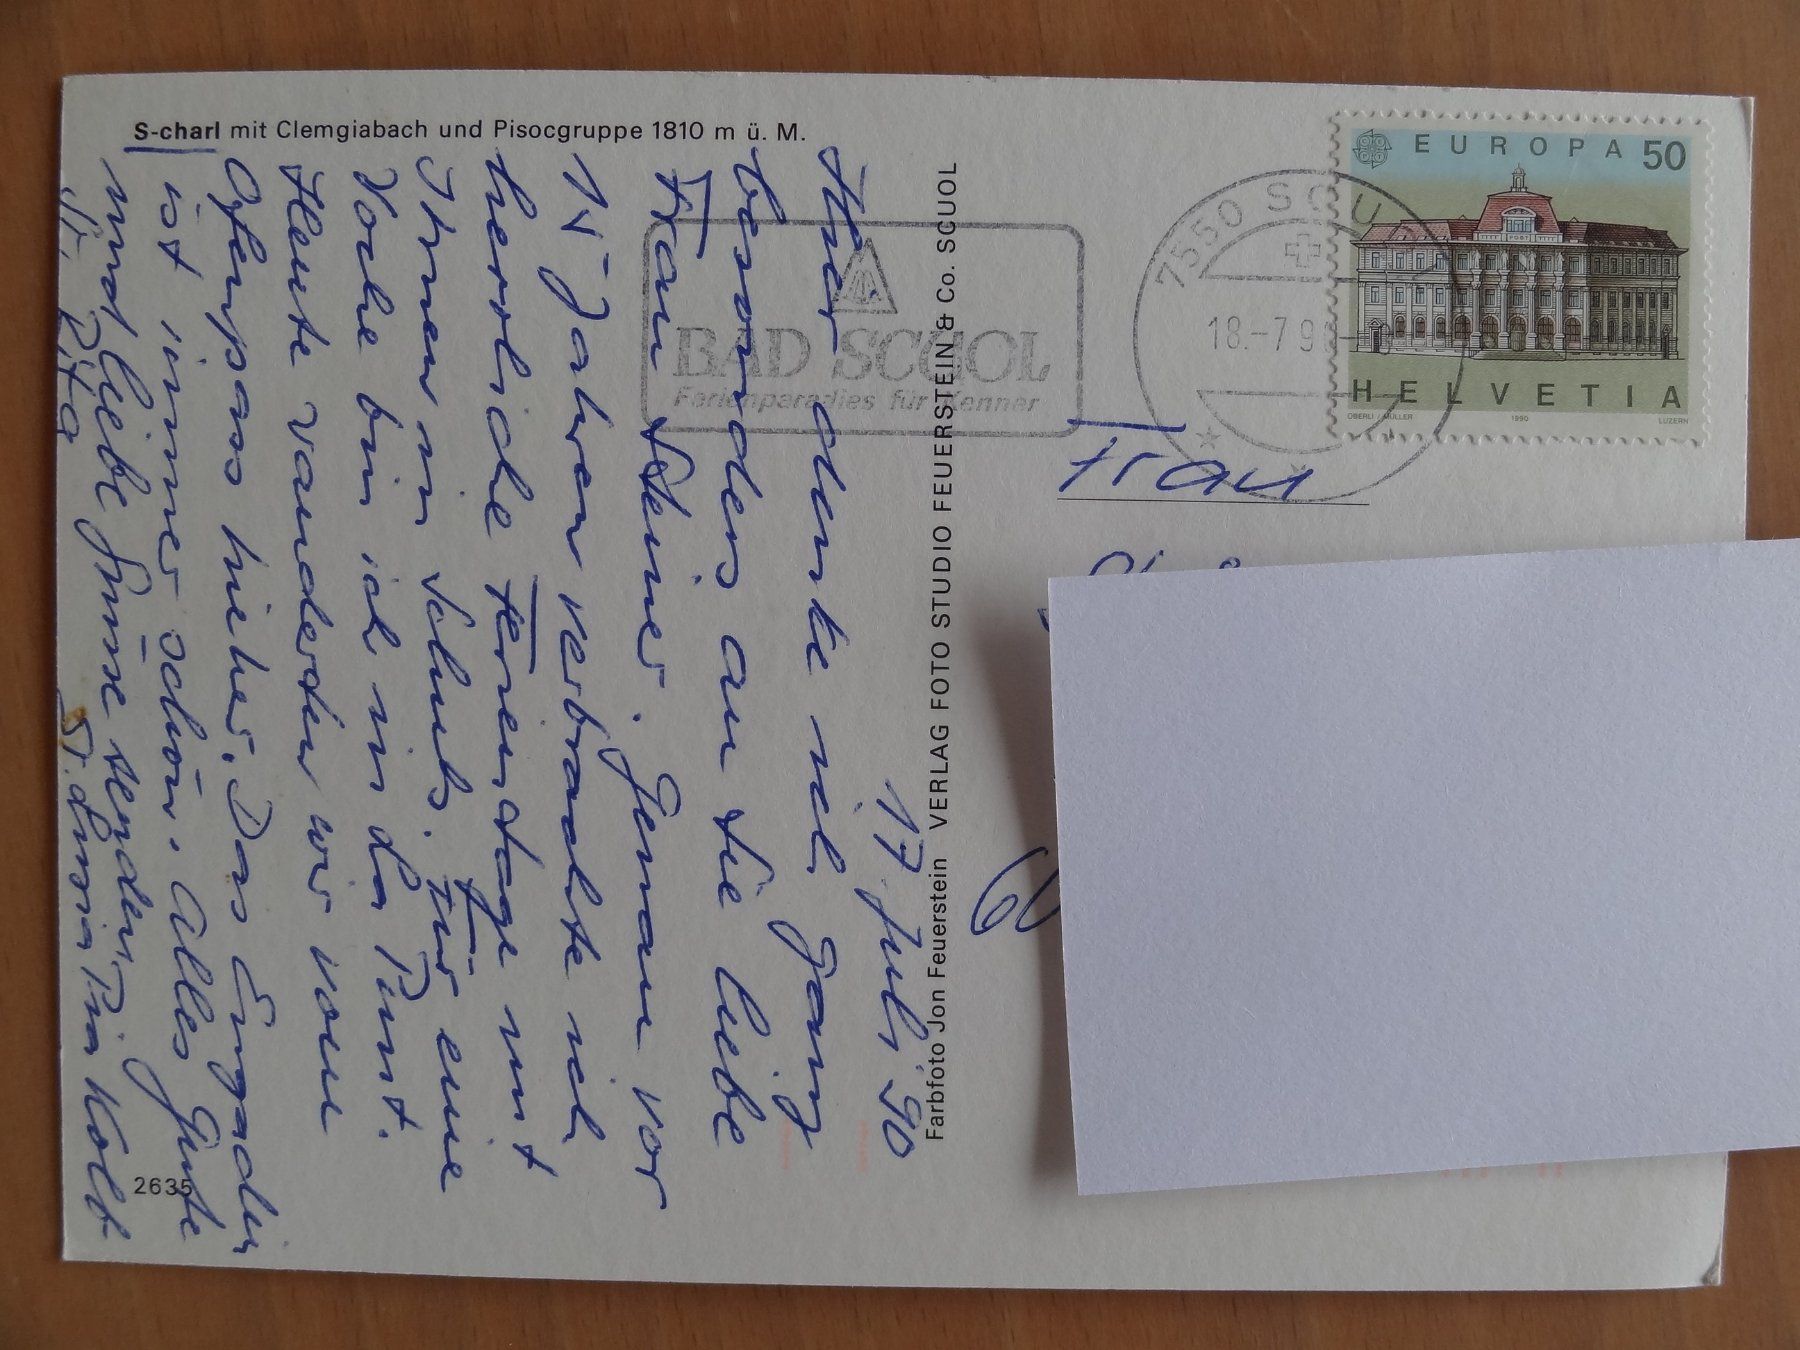 S-charl mit Clemgiabach und Pisocgruppe 1810 m ü. M.
EUROPA 50
HELVETIA
OBERLI / MÜLLER 1990 LUZERN
7550 SCU
18.-7.9
BAD SCUOL
Ferienparadies für Kenner
Frau
60
Farbfoto Jon Feuerstein VERLAG FOTO STUDIO FEUERSTEIN & Co. SCUOL
17. Juli 90
Hier denke ich ganz
besonders an Sie liebe
Frau Steiner. Genau vor
15 Jahren verbrachte ich
herrliche Ferientage mit
Ihnen in Schuls. Für eine
Woche bin ich in La Punt.
Heute wanderten wir vom
Ofenpass hieher. Das Engadin
ist immer schön. Alles Gute
und liebe Grüsse senden
Rita
2635